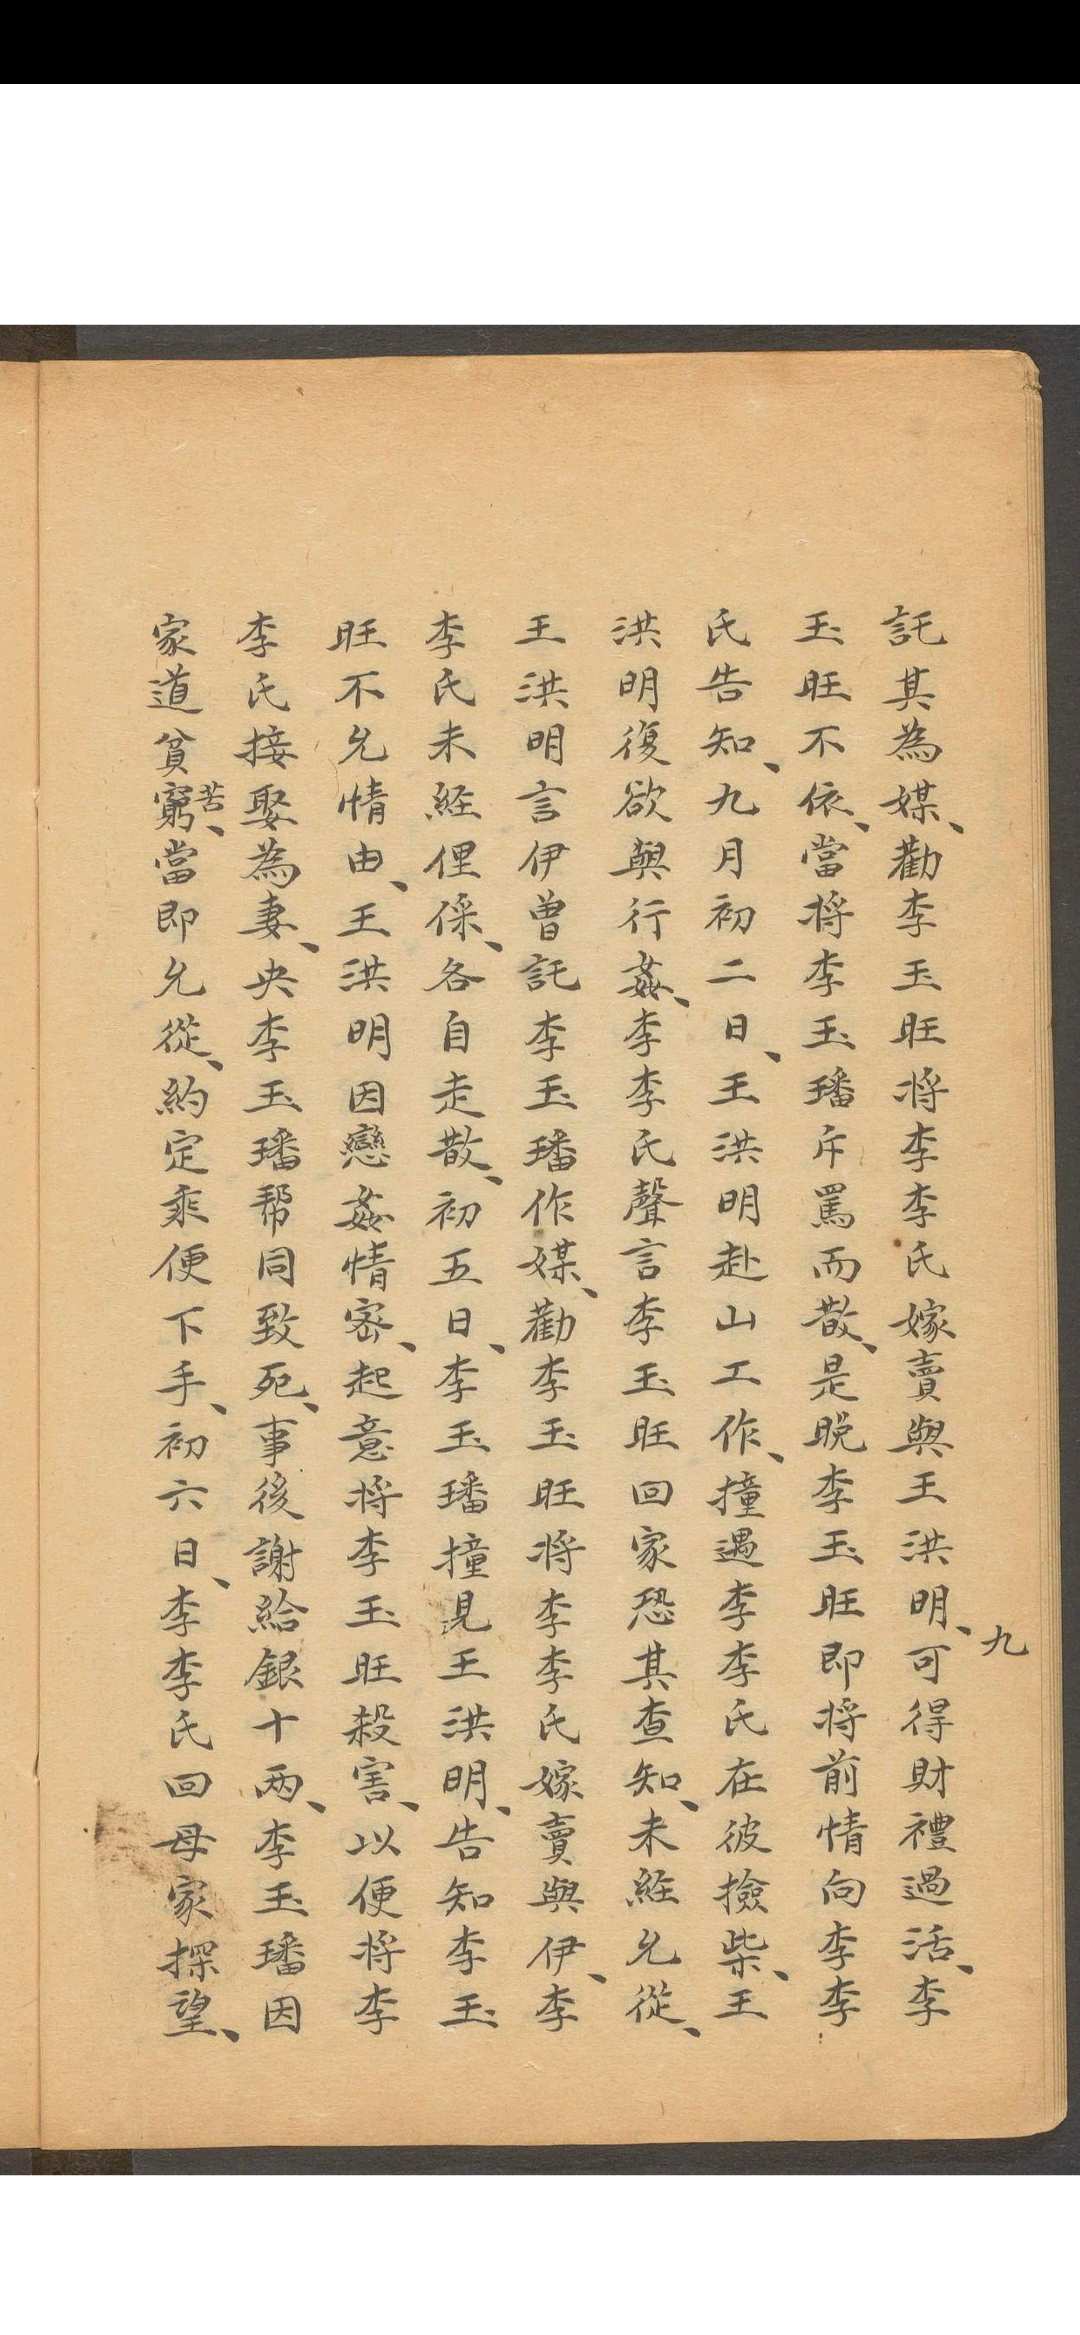 託其為媒、勸李玉旺将李李氏嫁賣與王洪明、可得財禮過活、李
玉旺不依、當将李玉璠斥罵而散、是晚李玉旺即将前情向李李
氏告知、九月初二日、王洪明赴山工作、撞遇李李氏在彼撿柴、王
洪明復欲與行姦、李李氏聲言李玉旺回家恐其查知、未經允從、
王洪明言伊曾託李玉璠作媒、勸李玉旺将李李氏嫁賣與伊、李
李氏未經俚倸、各自走散、初五日、李玉璠撞見王洪明、告知李玉
旺不允情由、王洪明因戀姦情密、起意将李玉旺殺害、以便将李
李氏接娶為妻、央李玉璠帮同致死、事後謝給銀十兩、李玉璠因
家道貧窮苦、當即允從、約定乘便下手、初六日、李李氏回母家探望、
九